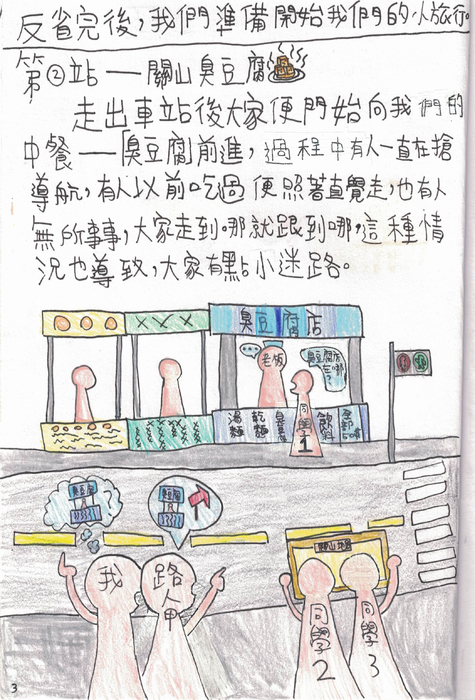 反省完後，我們準備開始我們的小旅行。
第②站——關山臭豆腐
走出車站後大家便開始向我們的
中餐——臭豆腐前進，過程中有人一直在搶
導航，有人以前吃過便照著直覺走，也有人
無所事事，大家走到哪就跟到哪，這種情
況也導致，大家有點小迷路。
臭豆腐店
老板
臭豆腐店在哪？
湯麵
乾麵
臭豆腐
飲料
同學1
臭豆腐店
?
臭豆腐店
關山地圖
我
路人甲
同學2
同學3
3